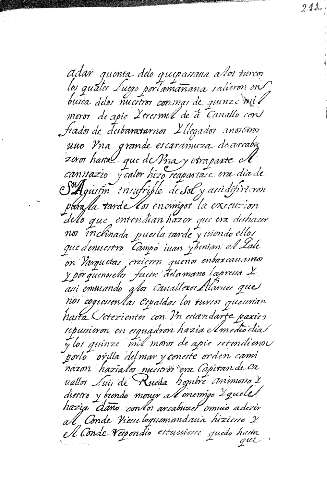 212
a dar quenta de lo que passaua a los turcos
los quales luego por la mañana salieron en
busca de los nuestros con mas de quinze mil
moros de a pie y tres mil de a Cauallo con
fiados de desbaratarnos y llegados a nosotros
uuo Vna grande escaramuza de arcabu
zeros hasta que de Vna y otra parte el
cansazio y calor hizo repararse era dia de
Sn Agustin insufrible de Sol y assi difirieron
para la tarde los enemigos la execuzion
de lo que entendian hazer que era deshazer
nos inclinada pues la tarde y viendo ellos
que de nuestro Campo iuan y Venian al
en creieron que nos embarcauamos
y porque no se les fuese de la mano la presa
assi embiando a los Caualleros Alarues que
nos cogiesen las Espaldas los turcos que serian
hasta setezientos con Vn estandarte
se pusieron en esquadron hazia el medio dia
y los quinze mil moros de a pie se tendieron
por la orilla del mar y con este orden cami
naron hazia los nuestros era Capitan de ca
vallos Luis de Rueda hombre animoso y
diestro y viendo mouer al enemigo y que le
hazia daño con los arcabuzes embio a dezir
al Conde Viese lo que mandaua hiziesse y
el Conde respondio estuuiesse quedo hasta
que